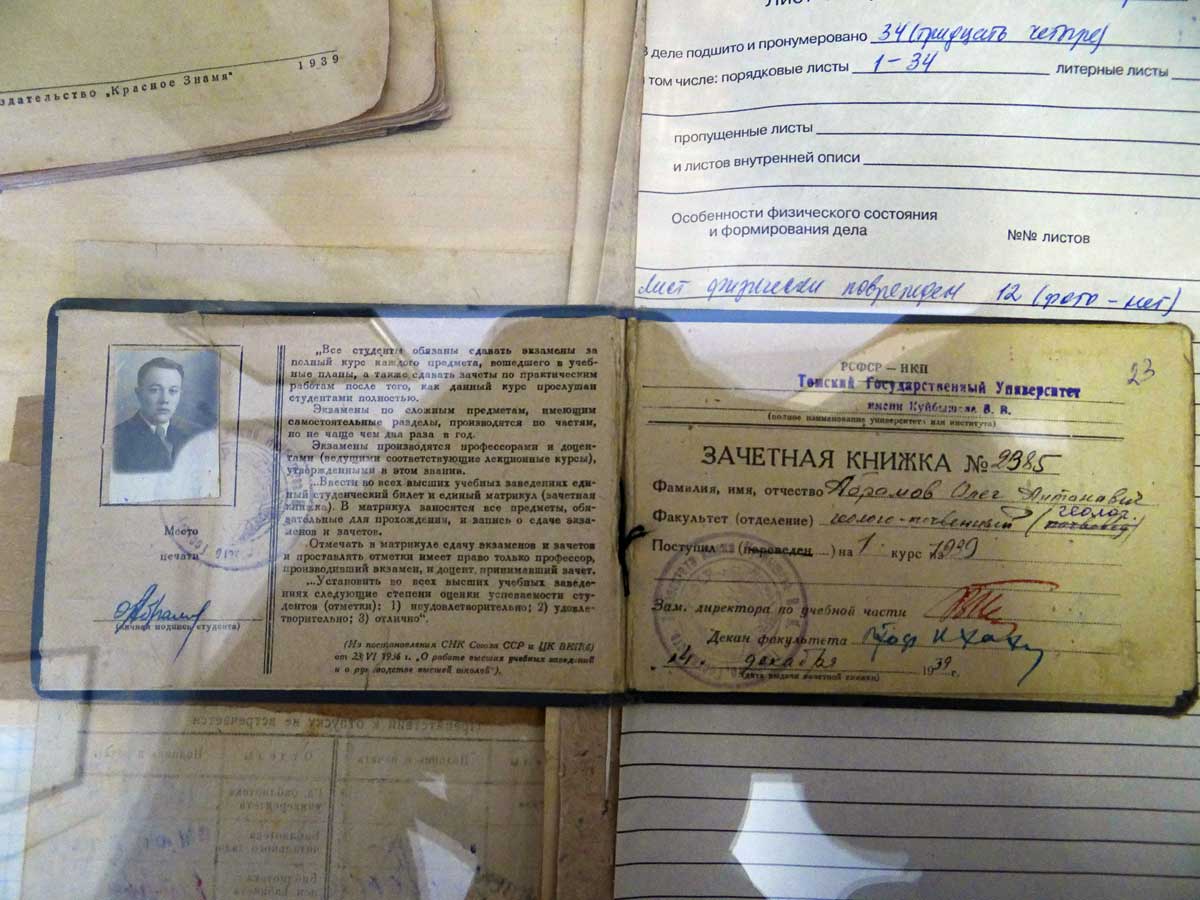 здательство „Красное Знамя“ 1939
В деле подшито и пронумеровано 34 (тридцать четыре)
том числе: порядковые листы 1-34 литерные листы
пропущенные листы
и листов внутренней описи
Особенности физического состояния
и формирования дела
№№ листов
Лист физически поврежден 12 (фото - нет)
Место
печати
(личная подпись студента)
„Все студенты обязаны сдавать экзамены за
полный курс каждого предмета, вошедшего в учеб-
ные планы, а также сдавать зачеты по практическим
работам после того, как данный курс прослушан
студентами полностью.
Экзамены по сложным предметам, имеющим
самостоятельные разделы, производятся по частям,
но не чаще чем два раза в год.
Экзамены производятся профессорами и доцен-
тами (ведущими соответствующие лекционные курсы),
утвержденными в этом звании.
...Ввести во всех высших учебных заведениях еди-
ный студенческий билет и единый матрикул (зачетная
книжка). В матрикул заносятся все предметы, обя-
зательные для прохождения, и запись о сдаче экза-
менов и зачетов.
Отмечать в матрикуле сдачу экзаменов и зачетов
и проставлять отметки имеет право только профессор,
производивший экзамен, и доцент, принимавший зачет.
...Установить во всех высших учебных заведе-
ниях следующие степени оценки успеваемости сту-
дентов (отметки): 1) неудовлетворительно; 2) удовле-
творительно; 3) отлично“.
(Из постановления СНК Союза ССР и ЦК ВКП(б)
от 23/VI 1936 г. „О работе высших учебных заведений
и о руководстве высшей школой“).
23
РСФСР — НКП
Томский Государственный Университет
имени Куйбышева В. В.
(полное наименование университета или института)
ЗАЧЕТНАЯ КНИЖКА № 2985
Фамилия, имя, отчество Абрамов Олег Антонович
Факультет (отделение) геолого-почвенный (геолог.
Поступил (переведен) на 1 курс 1939
Зам. директора по учебной части
Декан факультета
декабря 1939 г.
(дата выдачи зачетной книжки)
Препятствий к отпуску не встречается